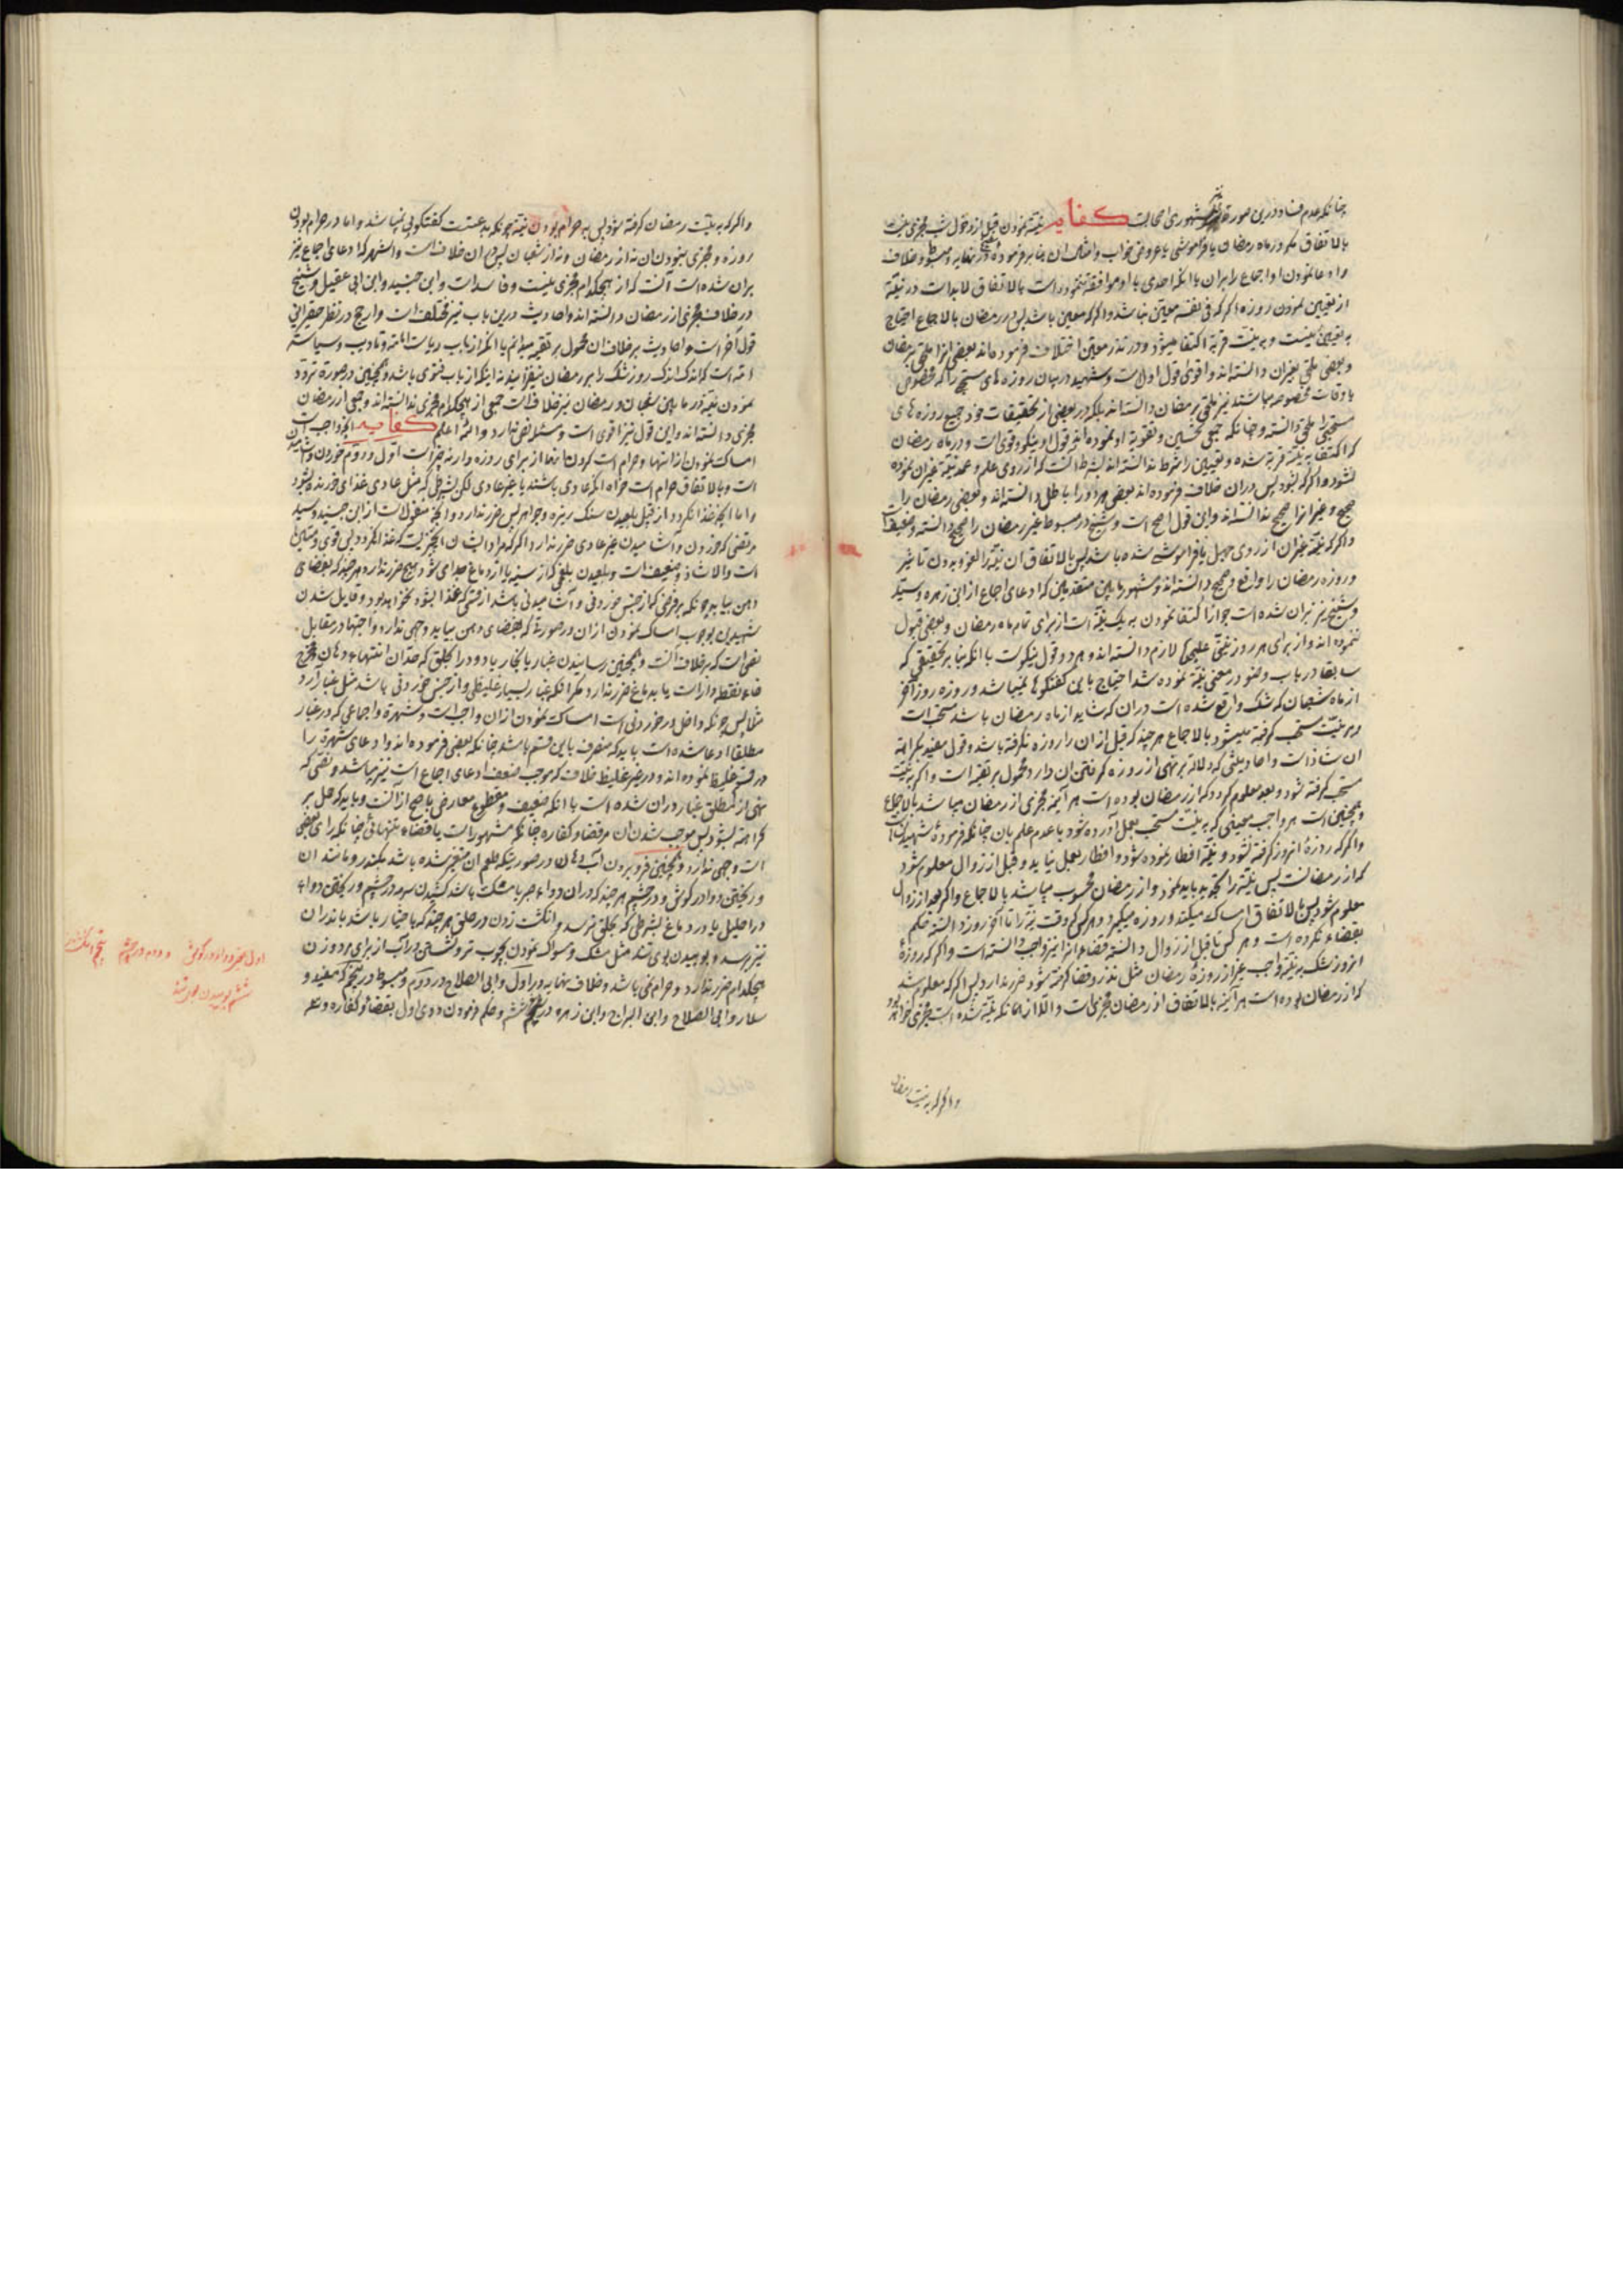 چنانکه عدم فساد درین صورة مشهوری امحالیت کفایه نیّة نمودن قبل از دخول شب مجزی نیست
بالاتفاق مکر در ماه رمضان با فراموشی یا عروض خواب و امثال ان بنا بر فرمودهٔ شیخ در نهایه و مبسوط و خلاف
وادعا نمودن او اجماع را بران با انکه احدی با او موافقة ننموده است بالاتفاق لابد است در نیّة
از تعیین نمودن روزه اکر که فی نفسه معیّن نباشد واکر که معین باشد پس در رمضان بالاجماع احتیاج
به تعیین نیست و به نیّت قربة اکتفا میشود و در نذر معیّن اختلاف فرموده‌اند بعضی انرا ملحق برمضان
و بعضی ملحق بغیر ان دانسته‌اند و اقوی قول اول است و شهید در بیان روزه های مستحبی را که مخصوص
باوقات مخصوصه میباشند نیز ملحق برمضان دانسته‌اند بلکه در بعضی از تحقیقات خود جمیع روزه های
مستحبی را ملحق دانسته و چنانکه جمعی تحسین و تقویة او نموده‌اند قول او نیکو و قوی است و در ماه رمضان
که اکتفا به نیّة قربة شده و تعیین را شرط ندانسته‌اند بشرط انست که از روی علم و عمد نیّة غیر ان نموده
نشود واکر که بشود پس دران خلاف فرموده‌اند بعضی هر دو را باطل دانسته‌اند و بعضی رمضان را
صحیح و غیر انرا صحیح ندانسته‌اند و این قول اصح است و شیخ در مبسوط غیر رمضان را صحیح دانسته و ضعیف است
واکر که نیّة غیر ان از روی جهل یا فراموشی شده باشد پس بالاتفاق ان نیّة را لغو و بدون تاثیر
و روزه رمضان را واقع و صحیح دانسته‌اند و مشهور مابین متقدمین که ادعای اجماع از ابن زهره و سیّد
و شیخ نیز بران شده است جواز اکتفا نمودن به یک نیّة است از برای تمام ماه رمضان و بعضی قبول
ننموده‌اند و از برای هر روز نیّتی علیحده لازم دانسته‌اند و هر دو قول نیکوست با انکه بنا بر تحقیقی که
سابقا در باب وضو در معنی نیّة نموده شد احتیاج باین کفتکوها نمیباشد و روزه روز آخر
از ماه شعبان که شک واقع شده است دران که شاید از ماه رمضان باشد مستحب است
و به نیّت مستحب کرفته میشود بالاجماع هر چند که قبل از ان را روزه نکرفته باشد و قول مفید بکراهة
ان شاذ است و احادیثی که دلالة بر نهی از روزه کرفتن ان دارد محمول بر تقیّه است واکر به نیّت
مستحب کرفته شود و بعد معلوم کردد که از رمضان بوده است هر آینه مجزی از رمضان میباشد بالاجماع
و همچنین است هر واجب معینی که به نیّت مستحب بعمل آورده شود با عدم علم بان چنانکه فرمودهٔ شهید است
واکر که روزهٔ انروز کرفته نشود و نیّة افطار نموده شود و افطار بعمل نیاید و قبل از زوال معلوم شود
که از رمضانست پس نیّة را تجدید باید نمود و از رمضان محسوب میباشد بالاجماع واکر بعد از زوال
معلوم شود پس بالاتفاق امساک میکند و روزه میکیرد و هر کس که وقت نیّة را تا آخر روز دانسته حکم
بقضاء نکرده است و هر کس تا قبل از زوال دانسته قضاء انرا نیز واجب دانسته است واکر که روزهٔ
انروز شک به نیّة واجب غیر از روزهٔ رمضان مثل نذر و قضا کرفته شود ضرر ندارد پس اکر که معلوم شد
که از رمضان بوده است هر آینه بالاتفاق از رمضان مجزی است والّا از همانکه نیّة شده است مجزی خواهد بود
واکر که به نیّت رمضان
واکر که به نیّت رمضان کرفته شود پس در حرام بودن نیّة چونکه بدعتست کفتکویی نمیباشد و اما در حرام بودن
روزه و مجزی نبودن ان نه از رمضان و نه از شعبان پس دران خلاف است و اشهر که ادعای اجماع نیز
بران شده است آنست که از هیچکدام مجزی نیست و فاسد است و ابن جنید و ابن ابی عقیل و شیخ
در خلاف مجزی از رمضان دانسته‌اند و احادیث درین باب نیز مختلف است و ارجح در نظر حقیر این
قول آخر است و احادیث بر خلاف ان محمول بر تقیه میدانم یا انکه از باب ریاست امامة و تادیب و سیاسة
امة است که اندک اندک روز شک را بر رمضان نیفزایند نه اینکه از باب فتوی باشد و همچنین در صورة تردد
نمودن نیّة در مابین شعبان و رمضان نیز خلاف است جمعی از هیچکدام مجزی ندانسته‌اند و جمعی از رمضان
مجزی دانسته‌اند و این قول نیز اقوی است و مسئله نصّ ندارد والله اعلم کفایه انچه واجب است
امساک نمودن از انها و حرام است کردن انها از برای روزه دار نه چیز است اوّل و دوّم خوردن و آشامیدن
است و بالاتفاق حرام است خواه انکه عادی باشند یا غیر عادی لکن بشرطی که مثل عادی غذای خورنده بشود
و اما انچه غذا نکردد از قبیل بلعیدن سنک ریزه و جواهر پس ضرر ندارد و انچه منقولست از ابن جنید و سیّد
مرتضی که خوردن و آشامیدن غیر عادی ضرر ندارد اکر که مراد ایشان انچیزیست که غذا نکردد پس قوی و متین
است والّا شاذ و ضعیف است و بلعیدن بلغمی که از سینه یا از دماغ جدای شود هیچ ضرر ندارد هر چند که بفضای
دهن بیاید چونکه بر فرضی که از جنس خوردنی و آشامیدنی باشد از قسمی که غذا بشود نخواهد بود و قایل شدن
شهیدین بوجوب امساک نمودن ازان در صورتی که بفضای دهن بیاید وجهی ندارد و اجتهاد در مقابل
نصّ است که بر خلاف آنست و همچنین رسانیدن غبار یا بخار یا دود را بحلق که حدّ ان انتهاء دهان و مخرج
خاء نقطه دار است یا به دماغ ضرر ندارد مکر انکه غبار بسیار غلیظی و از جنس خوردنی باشد مثل غبار آرد
مثلا پس چونکه داخل در خوردنی است امساک نمودن ازان واجب است و شهرة و اجماعی که در غبار
مطلقا ادعا شده است باید که منصرف باین قسم باشد چنانکه بعضی فرموده‌اند و ادعای شهرة را
در قسم غلیظ نموده‌اند و در غیر غلیظ خلاف که موجب ضعف ادعای اجماع است نیز میباشد و نصّی که
نهی از مطلق غبار دران شده است با انکه ضعیف و مقطوع معارض باصح ازانست و باید که حمل بر
کراهة بشود پس موجب شدن ان مر قضا و کفاره چنانکه مشهور است یا قضاء بتنهائی چنانکه رای بعضی
است وجهی ندارد و همچنین فرو بردن آب دهان در صورتیکه طعم ان متغیر شده باشد بکندر و مانند ان
و ریختن دوا در کوش و در چشم هر چند که دران دواء صبر یا مشک باشد کشیدن سرمه در چشم و ریختن دواء
در احلیل یا در دماغ بشرطی که بحلق نرسد و انکشت زدن در حلق هر چند که با خیار باشد باندران
نیز نرسد و بوییدن بوی تند مثل مشک و مسواک نمودن بچوب تر و نشستن در آب از برای مرد و زن
هیچکدام ضرر ندارد و حرام نمی باشد و خلاف نهایه در اوّل و ابی الصلاح در دوّم و مبسوط در پنجم که مفید و
سلار و ابی الصلاح و ابن البراج و ابن زهره در ششم و حکم فرمودن دوی اول بقضاء و کفاره و سه
اول صبر دوا در کوش و دوم در چشم پنجم انکشت
ششم بوییدن بوی تند